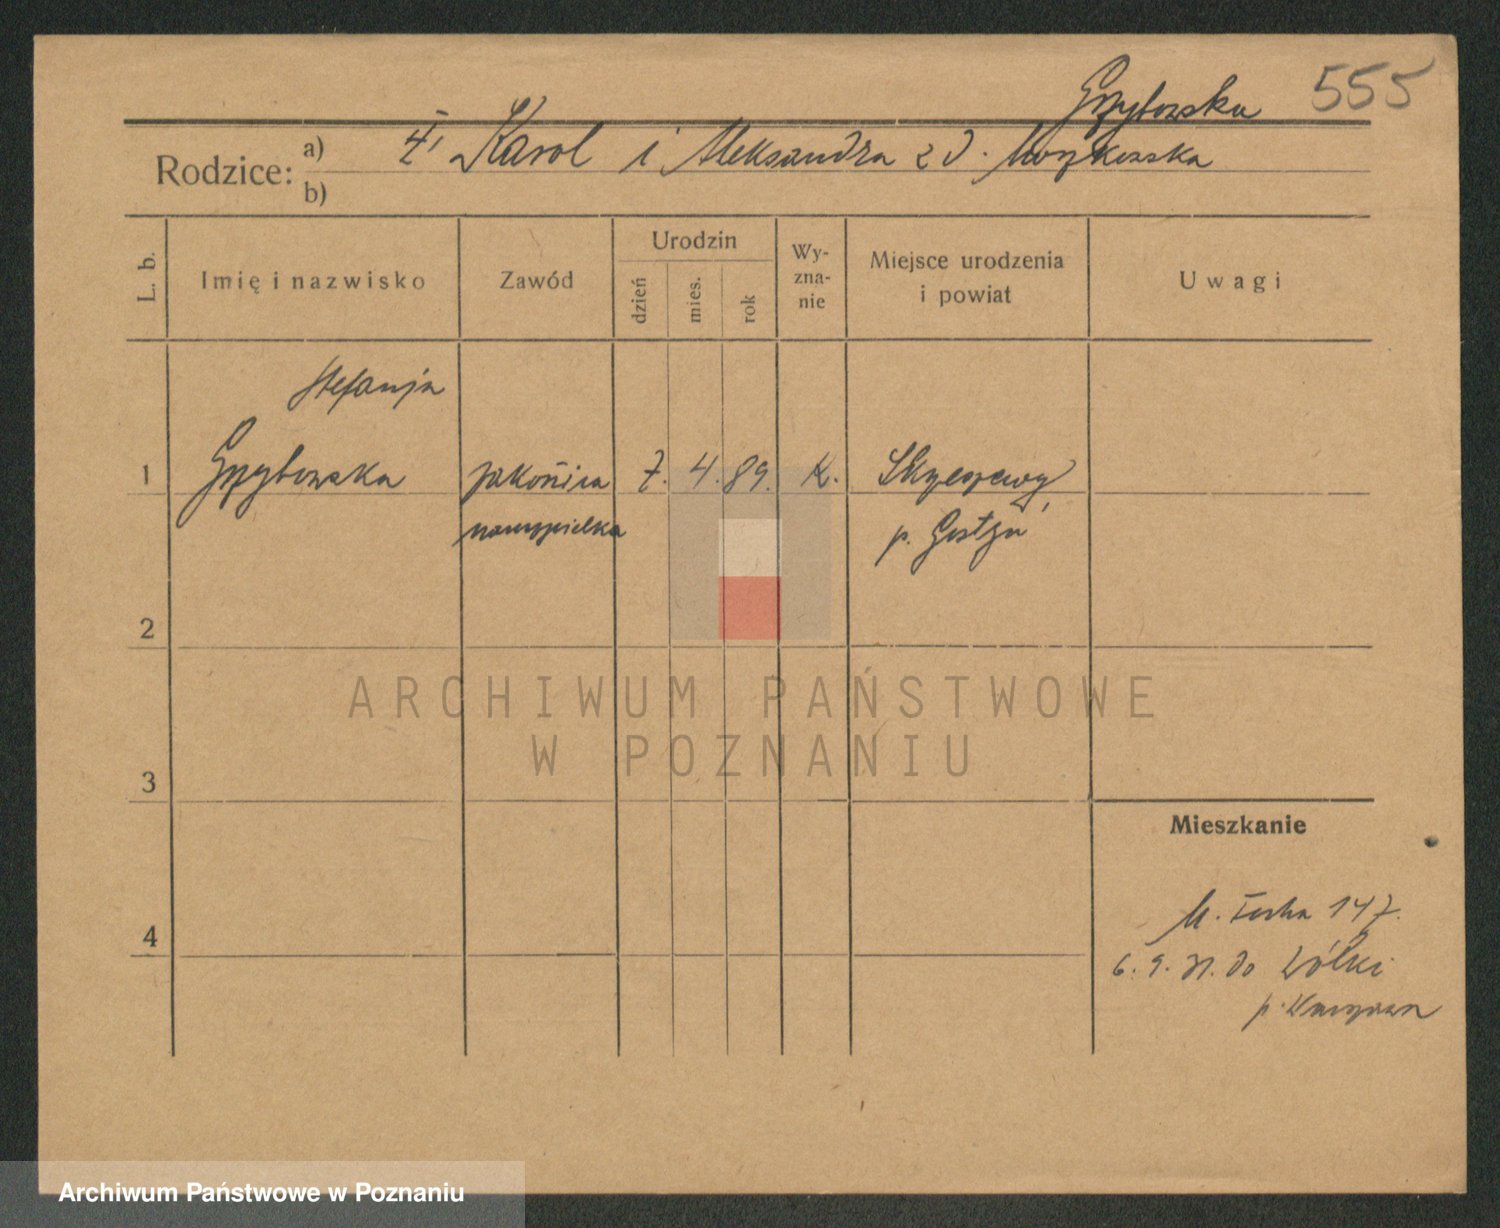 Grzybowska 555
Rodzice: a) Karol i Aleksandra z d.
b)
L. b.
Imię i nazwisko
Zawód
Urodzin
dzień
mies.
rok
Wy-
zna-
nie
Miejsce urodzenia
i powiat
Uwagi
Stefanja
1 Grzybowska zakonnica 7. 4. 89. K.
nauczycielka p. Gostyń
2
3
4
Mieszkanie
147.
6. 9. 31. do Wólki
p. Września
ARCHIWUM PAŃSTWOWE
W POZNANIU
Archiwum Państwowe w Poznaniu